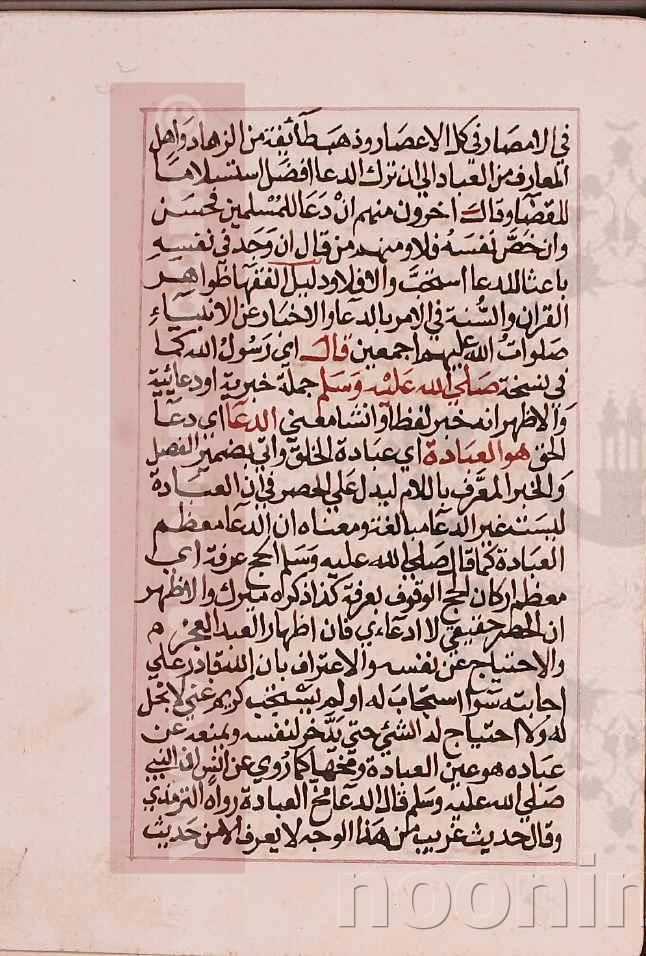 في الامصار في كل الاعصار وذهب طائفة من الزهاد واهل
المعارف من العباد الي ان ترك الدعا افضل استسلاما
للقضا وقال اخرون منهم ان دعا للمسلمين فحسن
وان خص نفسه فلا ومنهم من قال ان وجد في نفسه
باعثا للدعا استحب والا فلا ودليل الفقها ظواهر
القران والسنة في الامر بالدعا والاخبار عن الانبياء
صلوات الله عليهم اجمعين قال اي رسول الله كما
في نسخة صلي الله عليه وسلم جملة خبرية او دعائية
والاظهر انه خبر لفظا وانشا معني الدعا اي دعا
الحق هو العبادة اي عبادة الخلق واتي بضمير الفصل
والخبر المعرف باللام ليدل علي الحصر في ان العبادة
ليست غير الدعا مبالغة ومعناه ان الدعا معظم
العبادة كما قال صلي الله عليه وسلم الحج عرفة اي
معظم اركان الحج الوقوف بعرفة كذا ذكره ميرك والاظهر
ان الحصر حقيقي لا ادعاءي فان اظهار العبد العجز
والاحتياج عن نفسه والاعتراف بان الله قادر علي
اجابته سوا استجاب له او لم يستجب كريم غني لا بخل
له ولا احتياج له الي شئ حتي يدخر لنفسه ويمنعه عن
عباده هو عين العبادة ومخها كما روي عن انس ان النبي
صلي الله عليه وسلم قال الدعا مخ العبادة رواه الترمذي
وقال حديث غريب من هذا الوجه لا يعرف الا من حديث
noonin